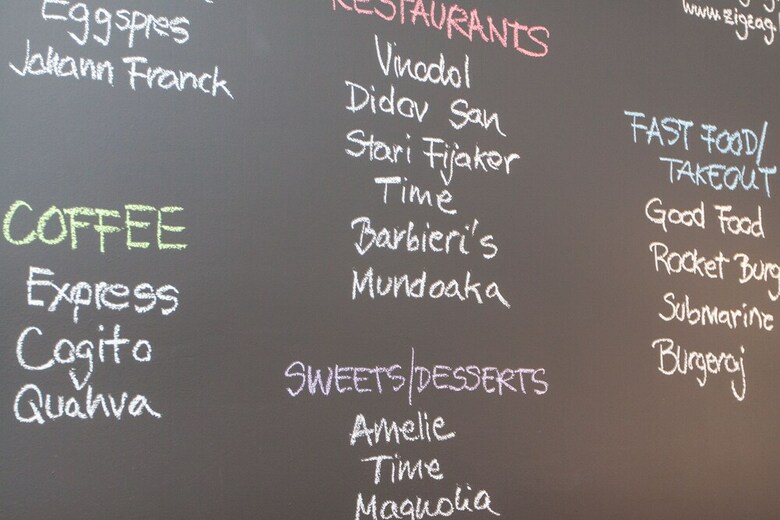 Eggspres
Johann Franck
COFFEE
Express
Cogito
Quahva
RESTAURANTS
Vinodol
Didov San
Stari Fijaker
Time
Barbieri's
Mundoaka
SWEETS/DESSERTS
Amelie
Time
Magnolia
www.zigzag
FAST FOOD/
TAKEOUT
Good Food
Rocket Burg
Submarine
Burgeraj